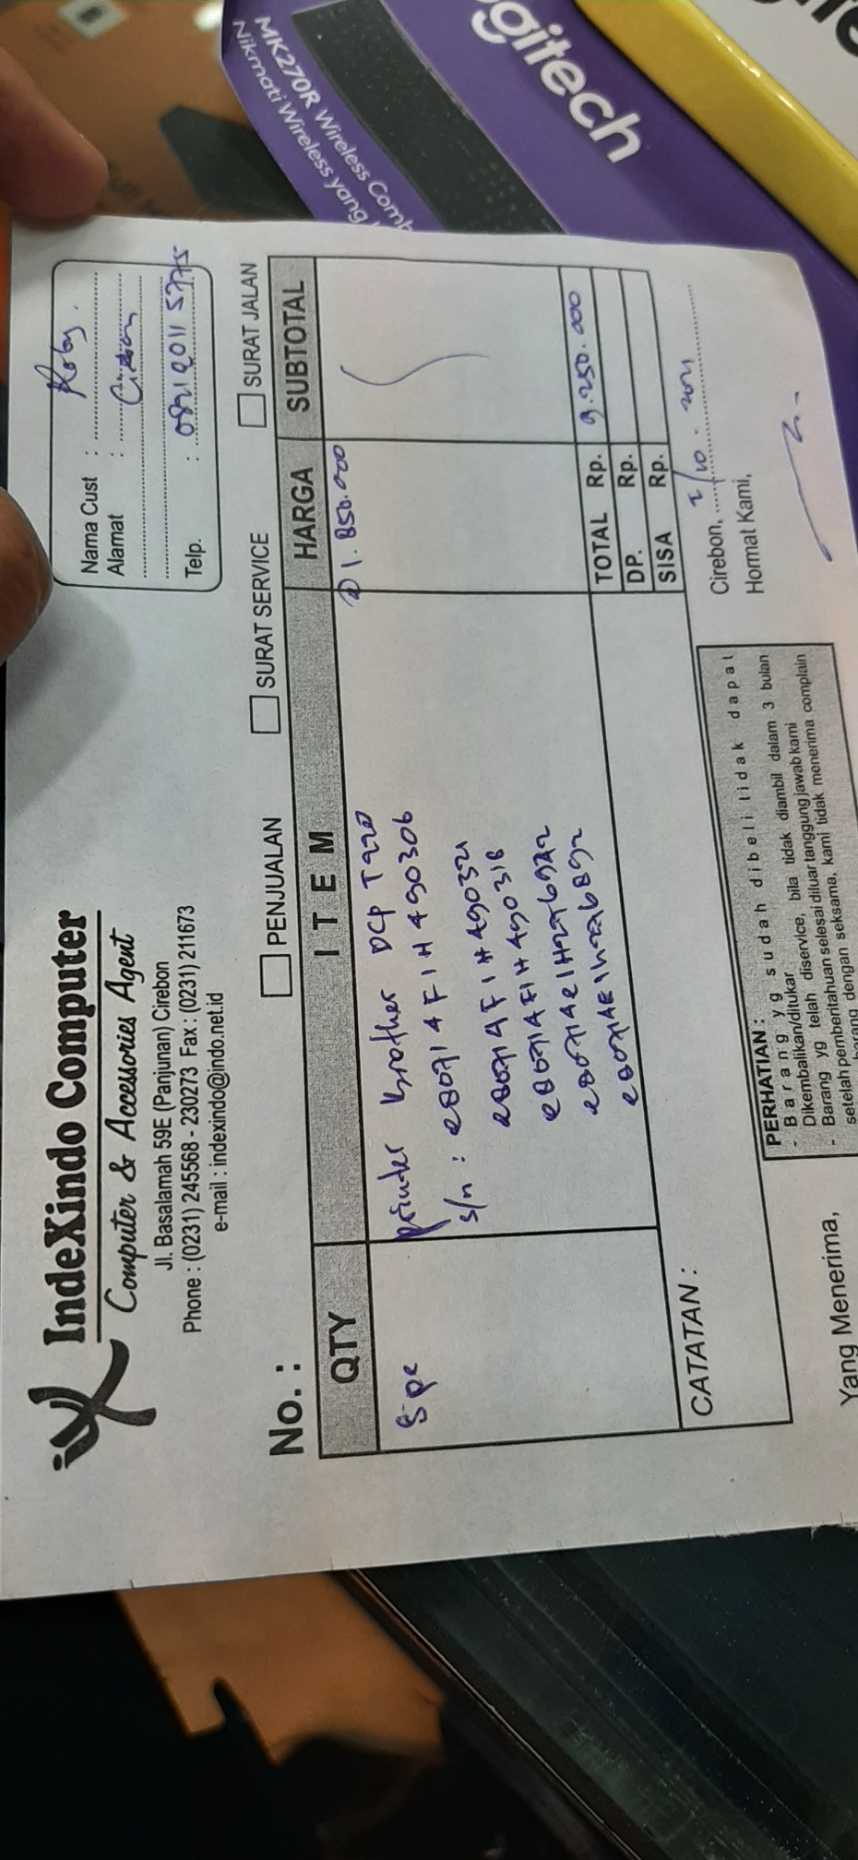 gitech
MK270R Wireless Comb
Nikmati Wireless yang
IndeXindo Computer
Computer & Accessories Agent
Jl. Basalamah 59E (Panjunan) Cirebon
Phone : (0231) 245568 - 230273 Fax : (0231) 211673
e-mail : indexindo@indo.net.id
Nama Cust : Roby.
Alamat : Cirebon
Telp. :
No. :
PENJUALAN SURAT SERVICE SURAT JALAN
QTY ITEM HARGA SUBTOTAL
5 pc Printer Brother DCP T420 @ 1.850.000
s/n : E80714F1H490306
E80714F1H490321
E80714F1H490318
TOTAL Rp. 9.250.000
DP. Rp.
SISA Rp.
CATATAN :
Cirebon, 2/10 - 2021
Hormat Kami,
PERHATIAN :
- Barang yg sudah dibeli tidak dapat
Dikembalikan/ditukar
- Barang yg telah diservice, bila tidak diambil dalam 3 bulan
setelah pemberitahuan selesai diluar tanggung jawab kami
barang dengan seksama, kami tidak menerima complain
Yang Menerima,